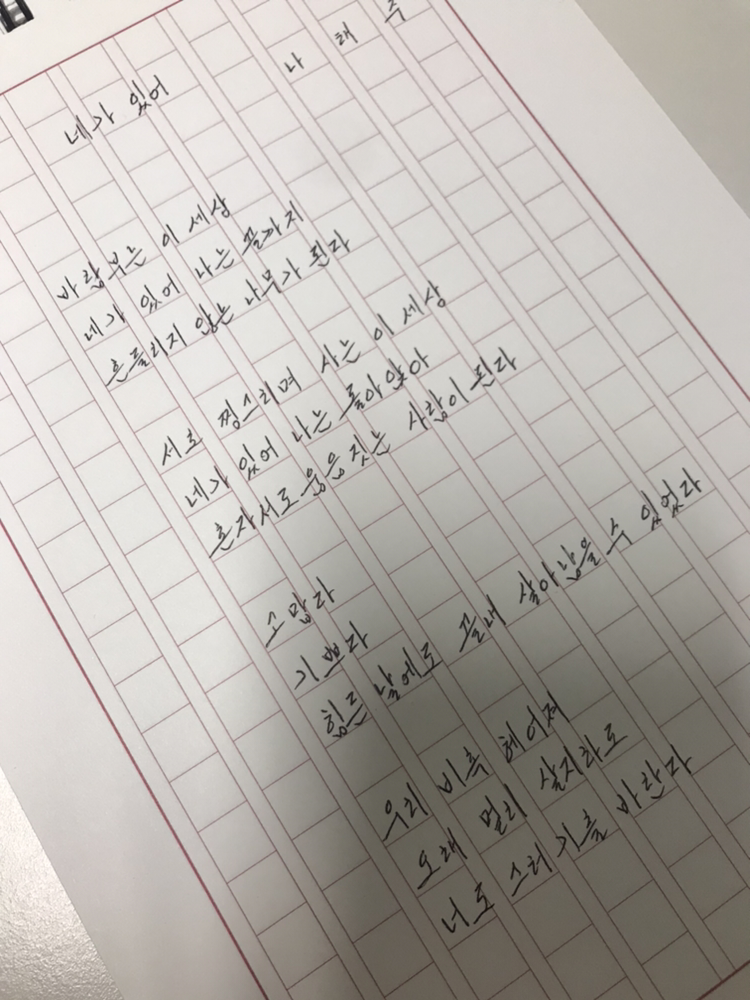 네가 있어
나 태 주
바람부는 이 세상
네가 있어 나는 끝까지
흔들리지 않는 나무가 된다
서로 찡그리며 사는 이 세상
네가 있어 나는 돌아앉아
혼자서도 웃음 짓는 사람이 된다
고맙다
기쁘다
힘든 날에도 끝내 살아남을 수 있었다
우리 비록 헤어져
오래 멀리 살지라도
너도 그러기를 바란다